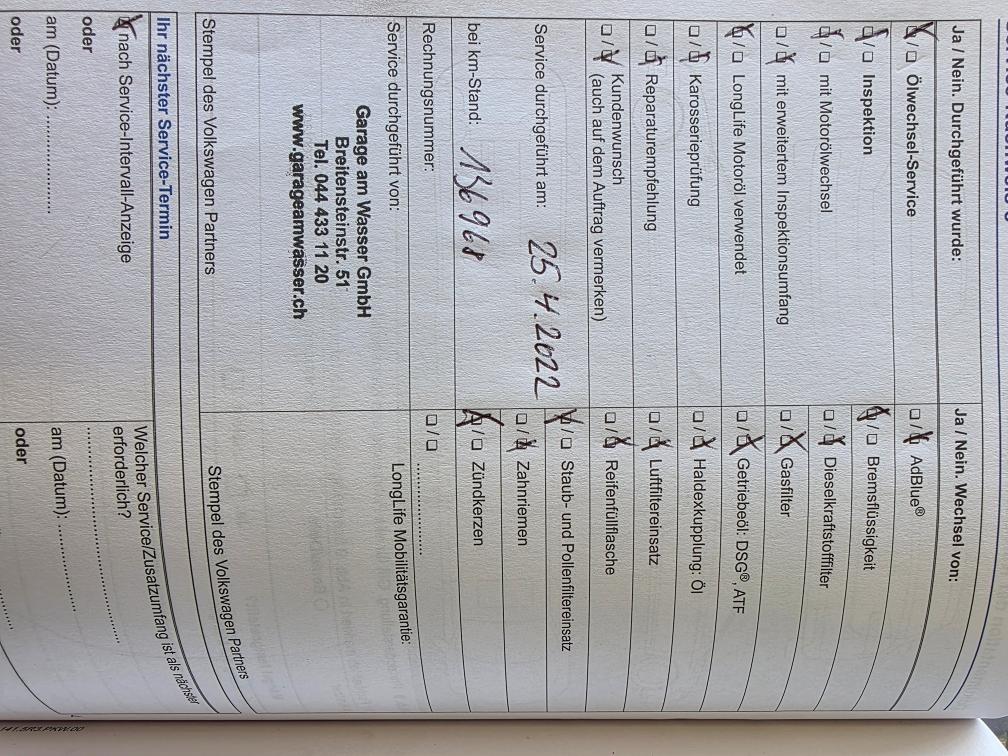 Ja / Nein. Durchgeführt wurde:
☒ / ☐ Ölwechsel-Service
☒ / ☐ Inspektion
☒ / ☐ mit Motorölwechsel
☐ / ☒ mit erweitertem Inspektionsumfang
☒ / ☐ LongLife Motoröl verwendet
☐ / ☒ Karosserieprüfung
☐ / ☒ Reparaturempfehlung
☐ / ☒ Kundenwunsch
(auch auf dem Auftrag vermerken)
Service durchgeführt am: 25.4.2022
bei km-Stand: 136968
Rechnungsnummer:
Service durchgeführt von:
Garage am Wasser GmbH
Breitensteinstr. 51
Tel. 044 433 11 20
www.garageamwasser.ch
Stempel des Volkswagen Partners
Ja / Nein. Wechsel von:
☐ / ☒ AdBlue®
☒ / ☐ Bremsflüssigkeit
☐ / ☒ Dieselkraftstofffilter
☐ / ☒ Gasfilter
☐ / ☒ Getriebeöl: DSG®, ATF
☐ / ☒ Haldexkupplung: Öl
☐ / ☒ Luftfiltereinsatz
☐ / ☒ Reifenfüllflasche
☒ / ☐ Staub- und Pollenfiltereinsatz
☐ / ☒ Zahnriemen
☒ / ☐ Zündkerzen
☐ / ☐ ....................
LongLife Mobilitätsgarantie:
Stempel des Volkswagen Partners
Ihr nächster Service-Termin
☒ nach Service-Intervall-Anzeige
oder
am (Datum): ....................
oder
Welcher Service/Zusatzumfang ist als nächster
erforderlich?
........................................
am (Datum): ....................
oder